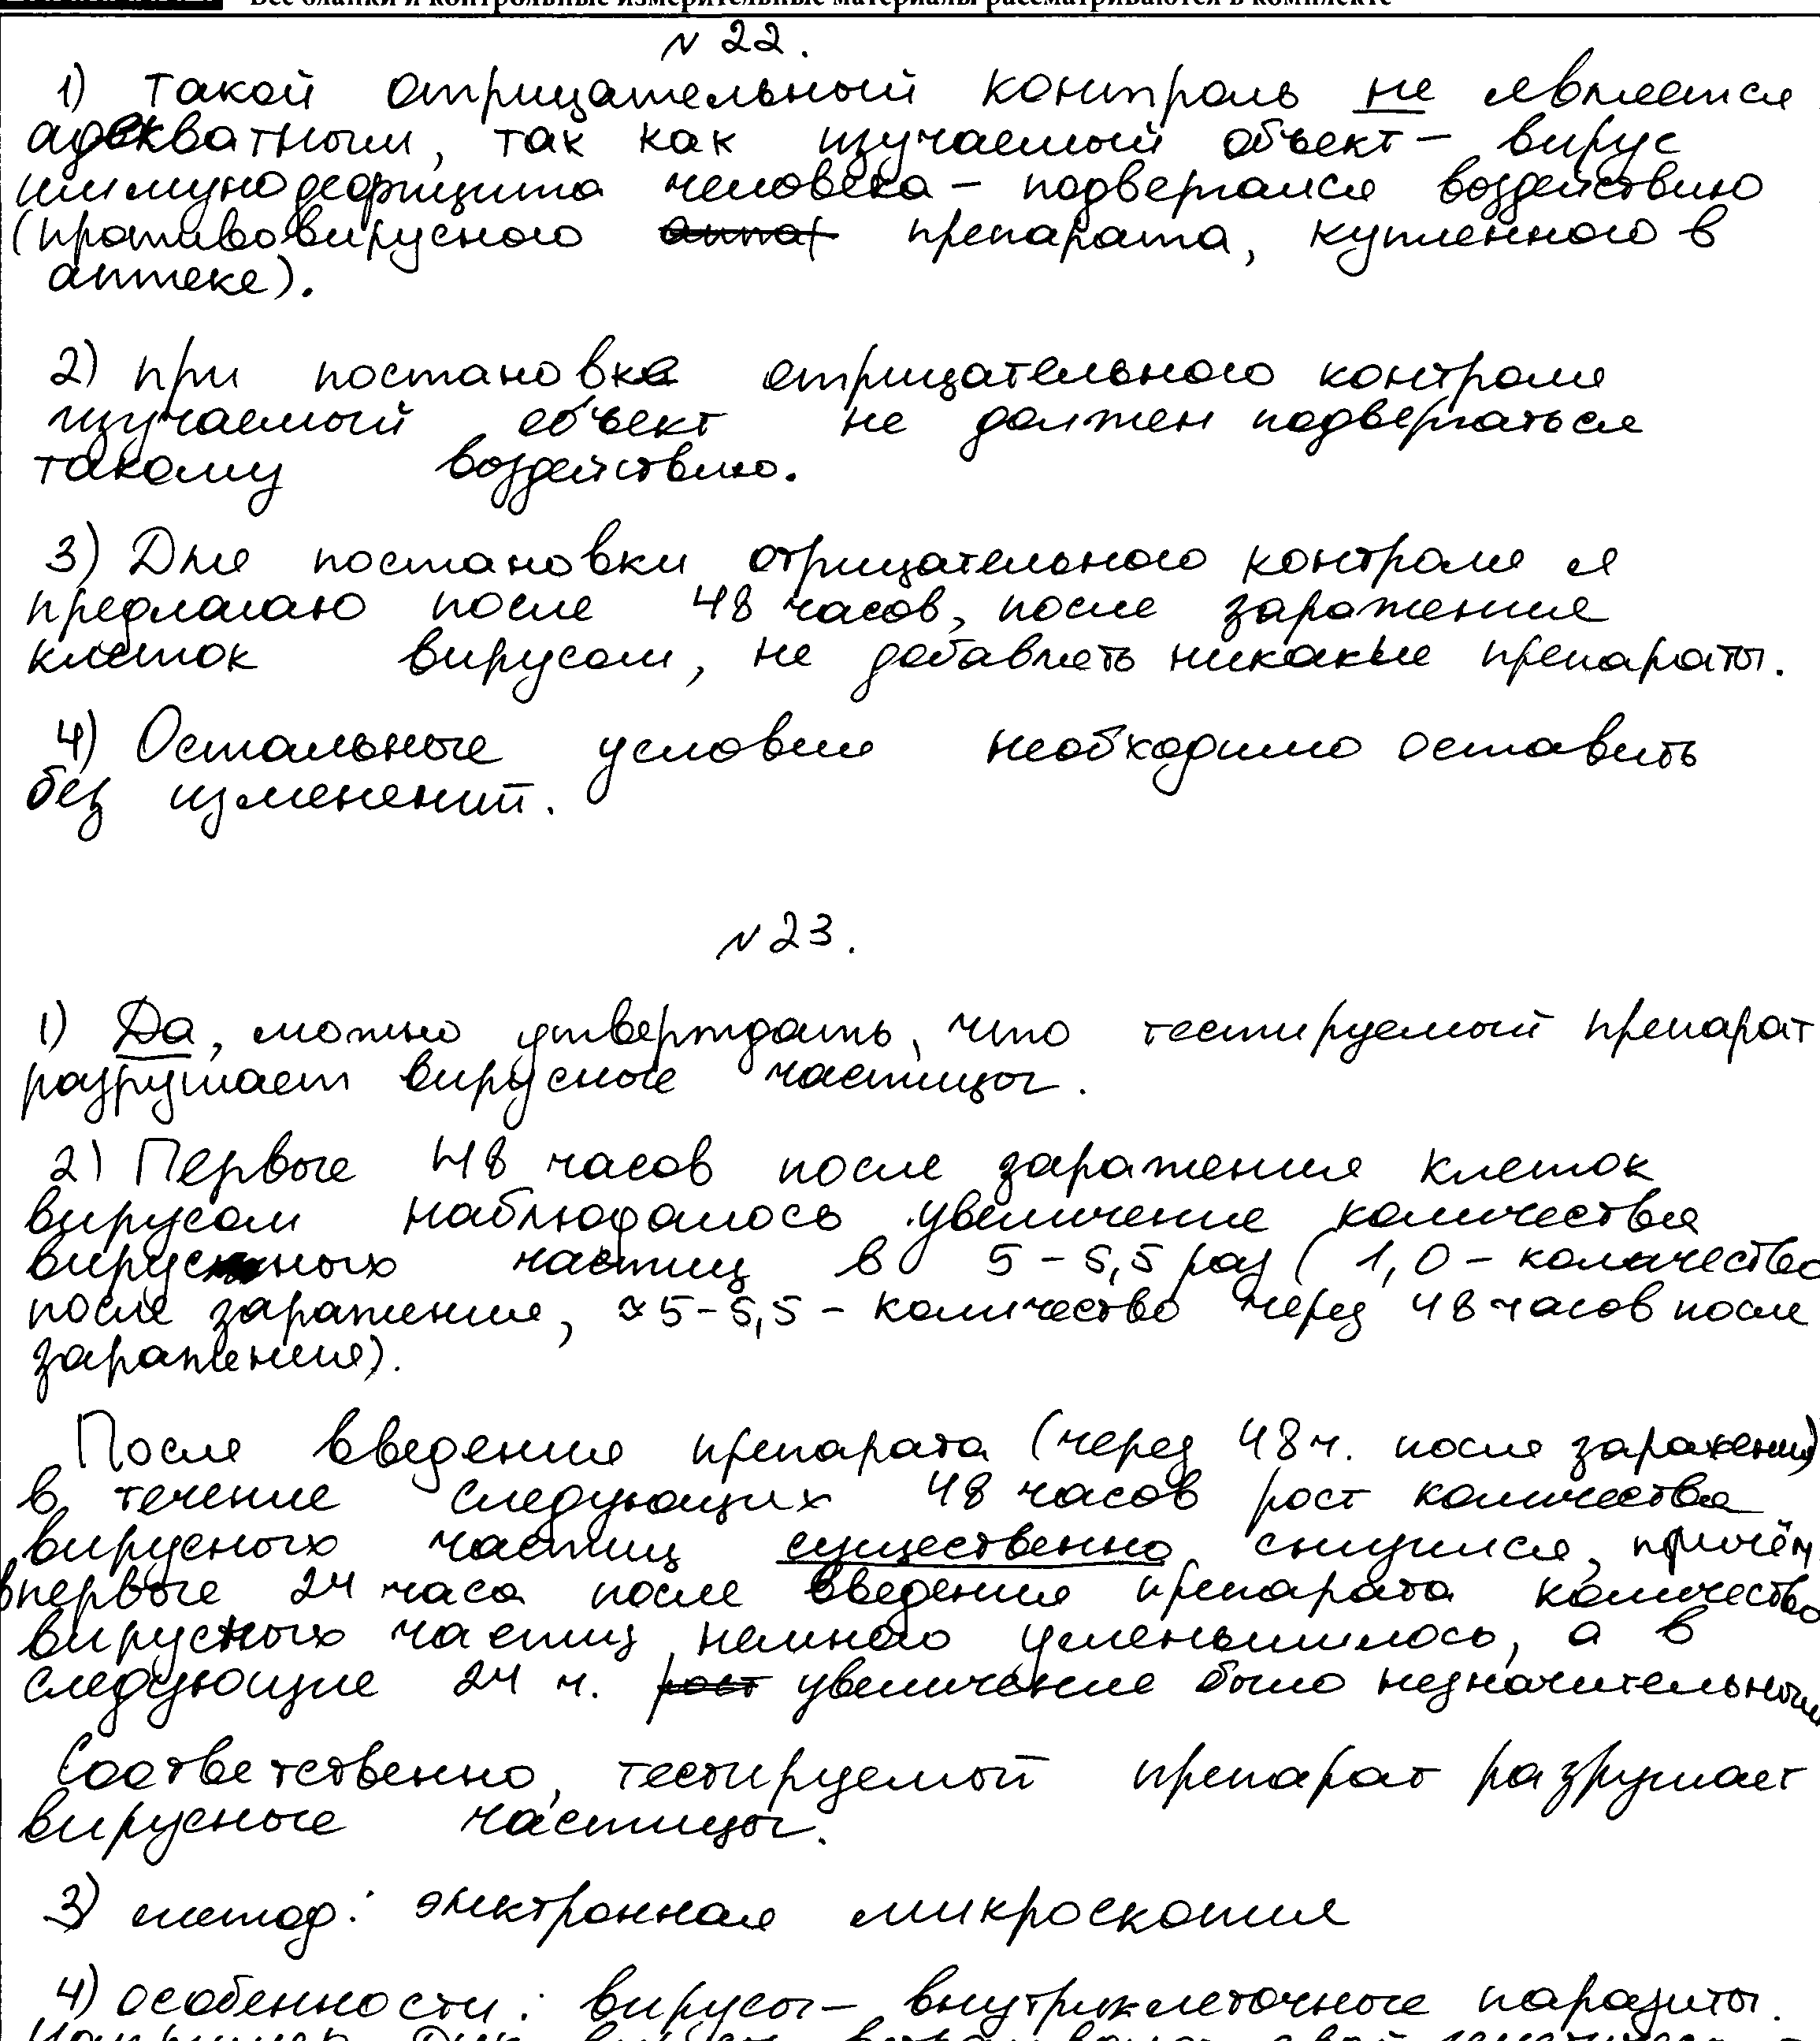 Все бланки и контрольные измерительные материалы рассматриваются в комплекте
N 22.
1) Такой отрицательный контроль не является
адекватным, так как изучаемый объект – вирус
иммунодефицита человека – подвергался воздействию
(противовирусного препарата, купленного в
аптеке).
2) при постановке отрицательного контроля
изучаемый объект не должен подвергаться
такому воздействию.
3) Для постановки отрицательного контроля я
предлагаю после 48 часов, после заражения
клеток вирусом, не добавлять никакие препараты.
4) Остальные условия необходимо оставить
без изменений.
N 23.
1) Да, можно утверждать, что тестируемый препарат
разрушает вирусные частицы.
2) Первые 48 часов после заражения клеток
вирусом наблюдалось увеличение количества
вирусных частиц в 5 – 5,5 раз ( 1,0 – количество
после заражения, ≈ 5 – 5,5 – количество через 48 часов после
заражения).
После введения препарата (через 48 ч. после заражения)
в течение следующих 48 часов рост количества
вирусных частиц существенно снизился, причём
впервые 24 часа после введения препарата количество
вирусных частиц немного уменьшилось, а в
следующие 24 ч. увеличение было незначительным
Соответственно, тестируемый препарат разрушает
вирусные частицы.
3) метод: электронная микроскопия
4) особенности: вирусы – внутриклеточные паразиты.